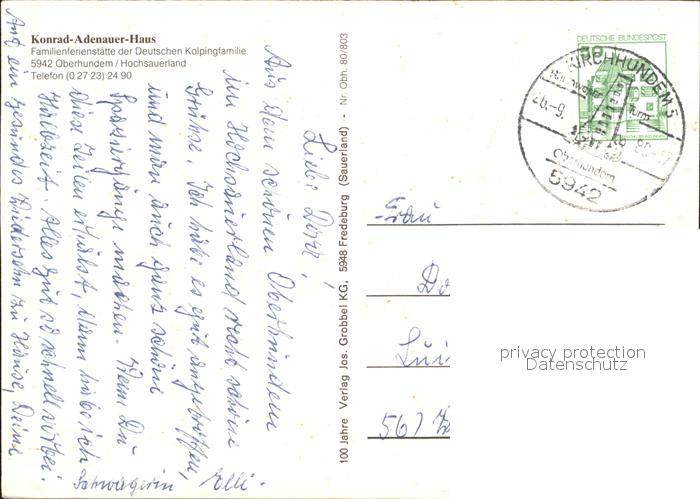 Konrad-Adenauer-Haus
Familienferienstätte der Deutschen Kolpingfamilie
5942 Oberhundem / Hochsauerland
Telefon (0 27 23) 24 90
Liebe Dora!
Aus dem schönen Oberhundem
im Hochsauerland recht schöne
Grüße. Ich habe es gut angetroffen,
und man auch ganz schöne
Spaziergänge machen. Wenn Du
diese Zeilen erhälst, dann habe ich
Halbzeit. Alles geht so schnell vorbei.
Auf ein gesundes Wiedersehn zu Hause, Deine
Schwägerin Elli.
100 Jahre Verlag Jos. Grobbel KG, 5948 Fredeburg (Sauerland) - Nr. Obh. 80/803
DEUTSCHE BUNDESPOST
50
KIRCHHUNDEM 5
turm
26.-9.
Oberhundem
5942
Frau
Do
567
privacy protection
Datenschutz